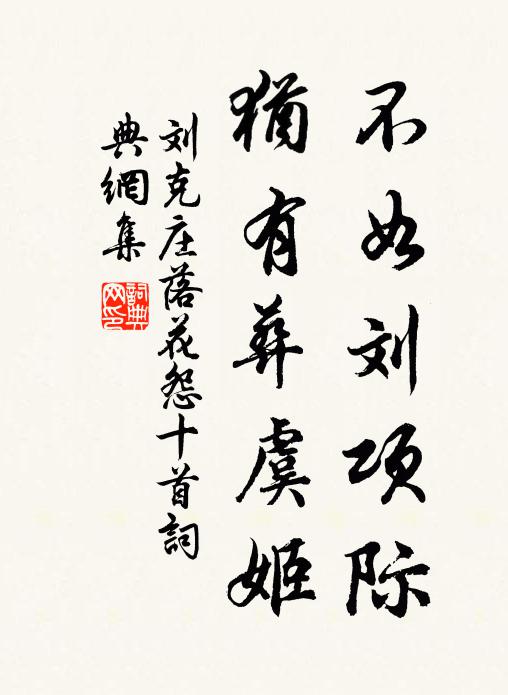 不如刘项际
猶有葬虞姬
刘克庄落花怨十首詞
典網集
詞典网印